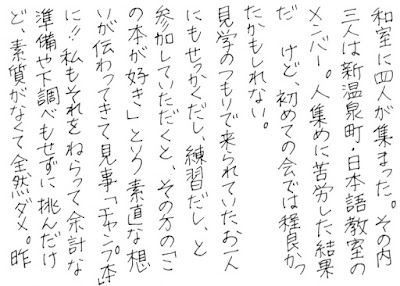 和室に四人が集まった。その内
三人は新温泉町・日本語教室の
メンバー。人集めに苦労した結果
だ けど、初めての会では程良かっ
たかもしれない。
見学のつもりで来られていたお一人
にもせっかくだし、練習だし、と
参加していただくと、その方の「こ
の本が好き」という素直な想
いが伝わってきて見事「チャンプ本」
に!! 私もそれをねらって余計な
準備や下調べもせずに挑んだけ
ど、素質がなくて全然ダメ。昨